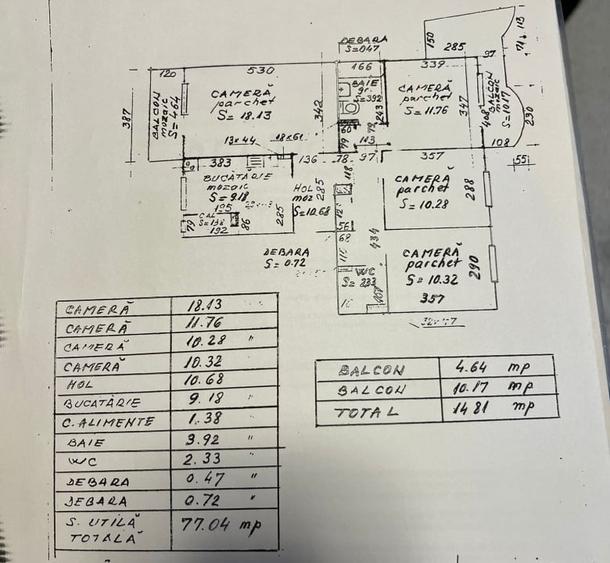 DEBARA
S=0.47
150
285
97
71
113
120
530
166
339
387
BALCON
mozaic
S=4.64
CAMERĂ
parchet
S= 18.13
342
BAIE
gr.
S=3.92
243
CAMERĂ
parchet
S= 11.76
347
408
BALCON
mozaic
S=10.17
230
60
79
113
108
13x44
18x61
383
136
78
97
357
55
BUCĂTĂRIE
mozaic
S= 9.18
HOL
moz
S=10.68
285
118
CAMERĂ
parchet
S= 10.28
288
195
79
CAL
S=1.38
192
86
285
56
68
434
DEBARA
S= 0.72
WC
S= 233
CAMERĂ
parchet
S= 10.32
357
290
CAMERĂ 18.13
CAMERĂ 11.76
CAMERĂ 10.28 "
CAMERĂ 10.32
HOL 10.68
BUCATĂRIE 9.18 "
C. ALIMENTE 1.38 "
BAIE 3.92 "
WC 2.33 "
DEBARA 0.47 "
DEBARA 0.72 "
S. UTILĂ 77.04 mp
TOTALĂ
BALCON 4.64 mp
BALCON 10.17 mp
TOTAL 14.81 mp